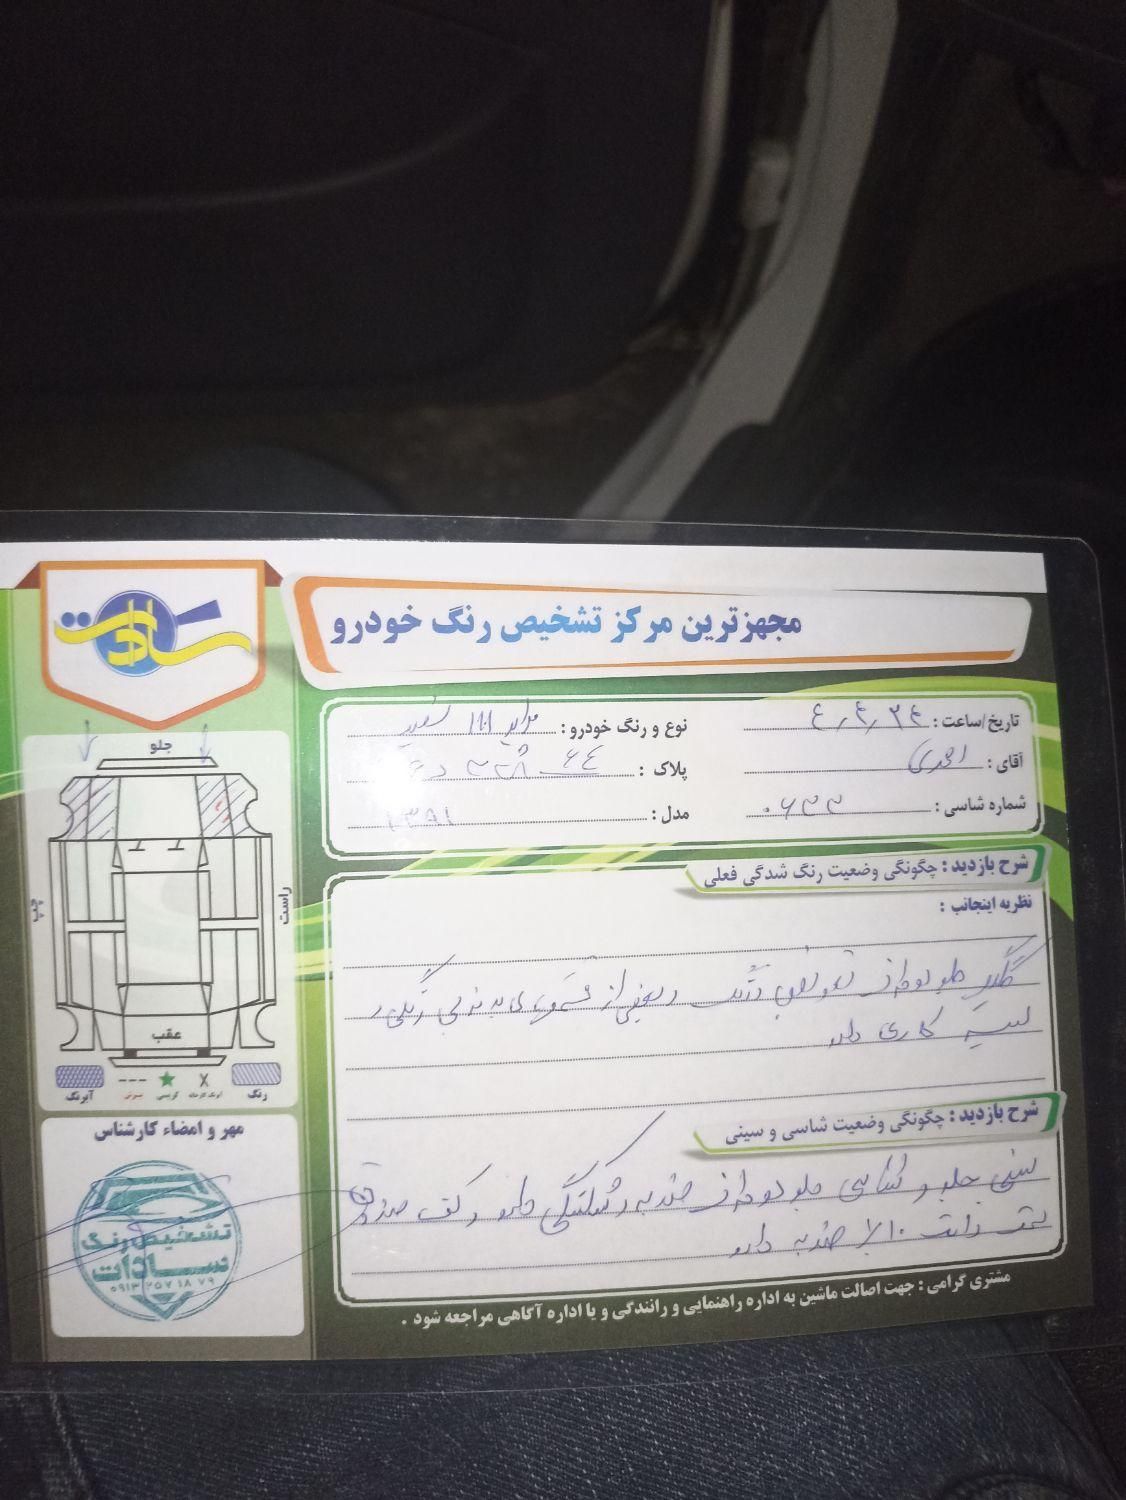 سادات
مجهزترین مرکز تشخیص رنگ خودرو
تاریخ/ساعت : ٤,٤,٢٤
نوع و رنگ خودرو : پراید 111 سفید
آقای : احمدی
پلاک :
شماره شاسی : ٠٦٣٣
مدل : ١٣٩١
شرح بازدید : چگونگی وضعیت رنگ شدگی فعلی
نظریه اینجانب :
گلگیر جلو دو طرف تعویض رنگ و بعضی از قسمتهای بدنه بی رنگی و
لیسه کاری دارد
شرح بازدید : چگونگی وضعیت شاسی و سینی
سینی جلو و شاسی جلو دو طرف ضربه و شکستگی دارد و کف صندوق
سمت راست ١٠٪ ضربه دارد
مشتری گرامی : جهت اصالت ماشین به اداره راهنمایی و رانندگی و یا اداره آگاهی مراجعه شود .
جلو
چپ
راست
عقب
رنگ
آبرنگ
مهر و امضاء کارشناس
تشخیص رنگ
سادات
۰۹۱۳ ۲۵۷ ۱۸ ۷۹